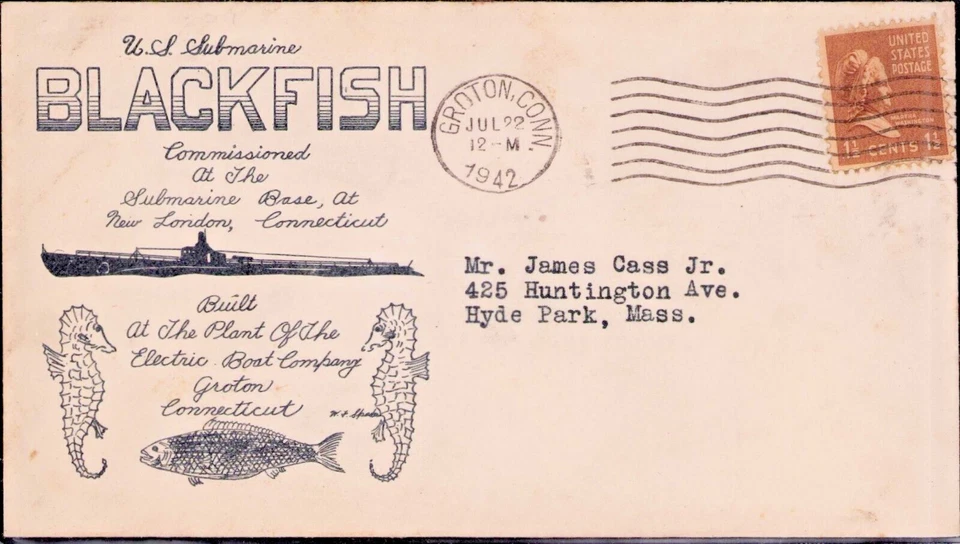 U.S. Submarine
BLACKFISH
Commissioned
At The
Submarine Base, At
New London, Connecticut
Built
At The Plant Of The
Electric Boat Company
Groton
Connecticut
GROTON, CONN
JUL 22
12-M
1942
UNITED
STATES
POSTAGE
MARTHA
WASHINGTON
1½ CENTS 1½
Mr. James Cass Jr.
425 Huntington Ave.
Hyde Park, Mass.